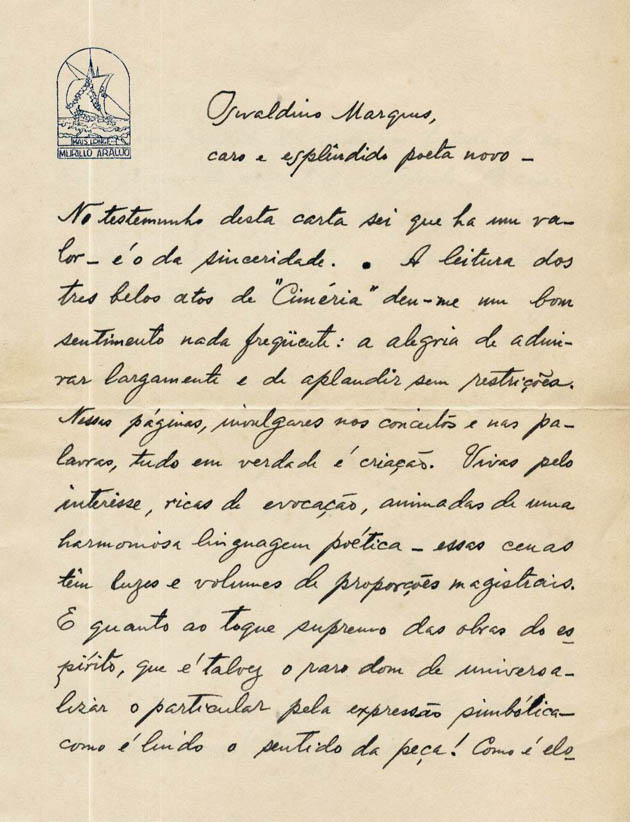 MAIS LONGE
MURILLO ARAUJO
Oswaldino Marques,
caro e esplêndido poeta novo –
No testemunho desta carta sei que ha um va-
lor – é o da sinceridade. . A leitura dos
tres belos atos de "Ciméria" deu-me um bom
sentimento nada freqüente: a alegria de admi-
rar largamente e de aplaudir sem restrições.
Nessas páginas, invulgares nos conceitos e nas pa-
lavras, tudo em verdade é criação. Vivas pelo
interêsse, ricas de evocação, animadas de uma
harmoniosa linguagem poética – essas cenas
têm luzes e volumes de proporções magistrais.
E quanto ao toque supremo das obras do es-
pírito, que é talvez o raro dom de universa-
lizar o particular pela expressão simbólica –
como é lindo o sentido da peça! Como é elo-